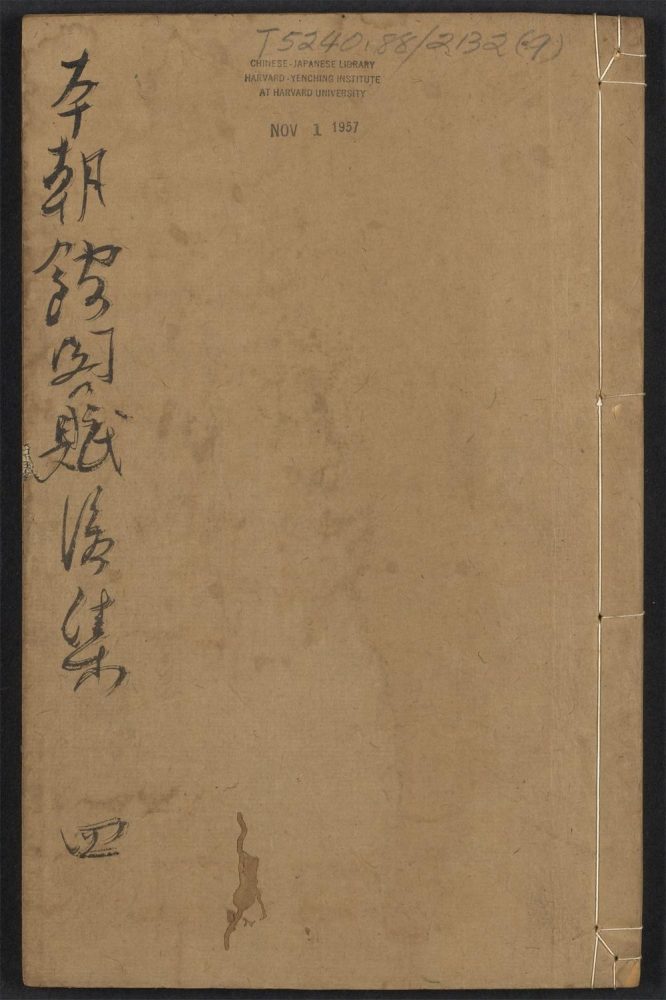 T5240.88/2132(9)
CHINESE-JAPANESE LIBRARY
HARVARD-YENCHING INSTITUTE
AT HARVARD UNIVERSITY
NOV 1 1957
本朝館閣賦後集
四